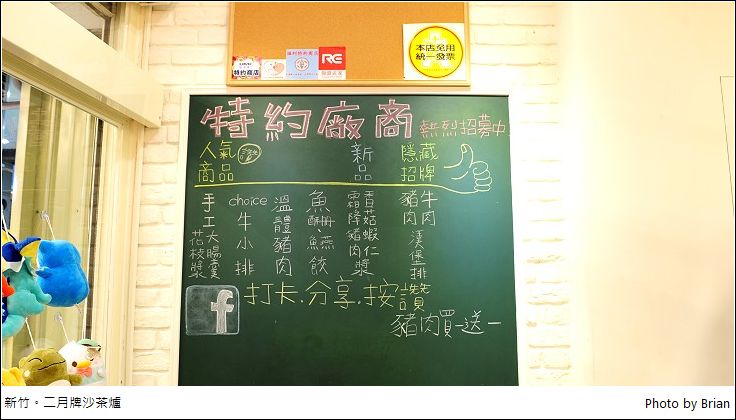 特約商店
RE
本店免用
統一發票
特約廠商 熱烈招募中
人氣
商品
新品
隱藏
招牌
手工大腸囊
花枝漿
choice
牛小排
溫體豬肉
魚酥‧魚燕餃
香菇蝦仁
霜降豬肉漿
牛肉
豬肉
漢堡排
f
打卡.分享.按讚
豬肉買一送一
新竹。二月牌沙茶爐
Photo by Brian